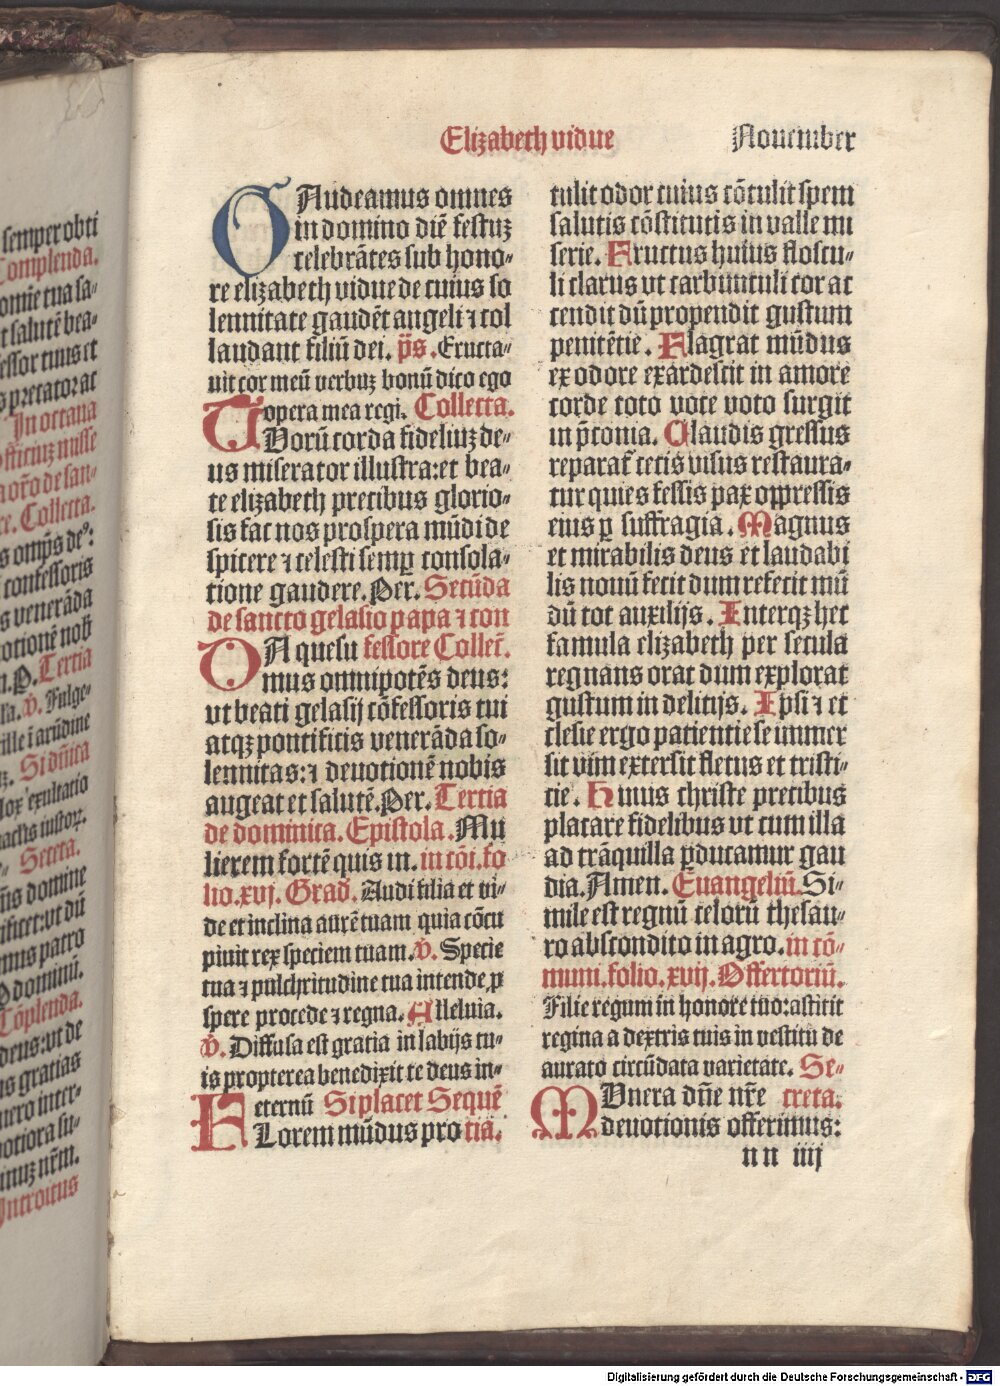 semper obti
Complenda.
omīe tua sa⸗
t salutē bea⸗
fessor tuus et
s precator at
In octaua
officiuz misse
a orōo de san⸗
re. Collecta.
confessoris
s venerāda
otionē nob̄
n. P. Tertia
la. v̄. Fulge⸗
ille ī arūdine
z. Si dn̄ica
exultatio
Secreta.
domine
mus patro
dominū.
Cōplenda.
deus: ut de
s gratias
uero inter⸗
uotiora su⸗
inuz nr̄m.
Introitus
Elizabeth vidue
Nouember
GAudeamus omnes
in domino diē festuz
celebrātes sub hono⸗
re elizabeth vidue de cuius so
lennitate gaudēt angeli ⁊ col
laudant filiū dei. p̄s. Eructa⸗
uit cor meū verbuz bonū dico ego
opera mea regi. Collecta.
TUorū corda fideliuz de⸗
us miserator illustra: et bea⸗
te elizabeth precibus glorio⸗
sis fac nos prospera mūdi de
spicere ⁊ celesti semꝑ consola⸗
tione gaudere. Per. Secūda
de sancto gelasio papa ⁊ con
DA quesu fessore Collec̄.
mus omnipotēs deus:
vt beati gelasij cōfessoris tui
atqz pontificis venerāda so⸗
lennitas: ⁊ deuotionē nobis
augeat et salutē. Per. Tertia
de dominica. Epistola. Mu
lierem fortē quis in. in cōi. fo
lio. xvj. Grad. Audi filia et vi⸗
de et inclina aurē tuam quia cōcu
piuit rex speciem tuam. v̄. Specie
tua ⁊ pulchritudine tua intende ꝓ
spere procede ⁊ regna. Alleluia.
v̄. Diffusa est gratia in labijs tu⸗
is propterea benedixit te deus in⸗
eternū Si placet Sequē
FLorem mūdus pro tia.
tulit odor cuius cōtulit spem
salutis cōstitutis in valle mi
serie. Fructus huius floscu⸗
li clarus vt carbunculi cor ac
cendit dū propendit gustum
penitētie. Flagrat mūdus
ex odore exardescit in amore
corde toto voce voto surgit
in p̄conia. Claudis gressus
reparat̄ cecis visus restaura⸗
tur quies fessis pax oppressis
eius ꝑ suffragia. Magnus
et mirabilis deus et laudabi
lis nouū fecit dum refecit mū
dū tot auxilijs. Interqz hec
famula elizabeth per secula
regnans orat dum explorat
gustum in delicijs. Ipsi ⁊ et
clesie ergo patientie se immer
sit vim extersit fletus et tristi⸗
cie. Huius christe precibus
placare fidelibus vt cum illa
ad trāquilla ꝑducamur gau
dia. Amen. Euangeliū. Si⸗
mile est regnū celorū thesau⸗
ro abscondito in agro. in cō⸗
muni. folio. xvij. Offertoriū.
Filie regum in honore tuo: astitit
regina a dextris tuis in vestitu de
aurato circūdata varietate. Se⸗
MUnera dn̄e nr̄e creta.
deuotionis offerimus:
nn iiij
Digitalisierung gefördert durch die Deutsche Forschungsgemeinschaft - DFG